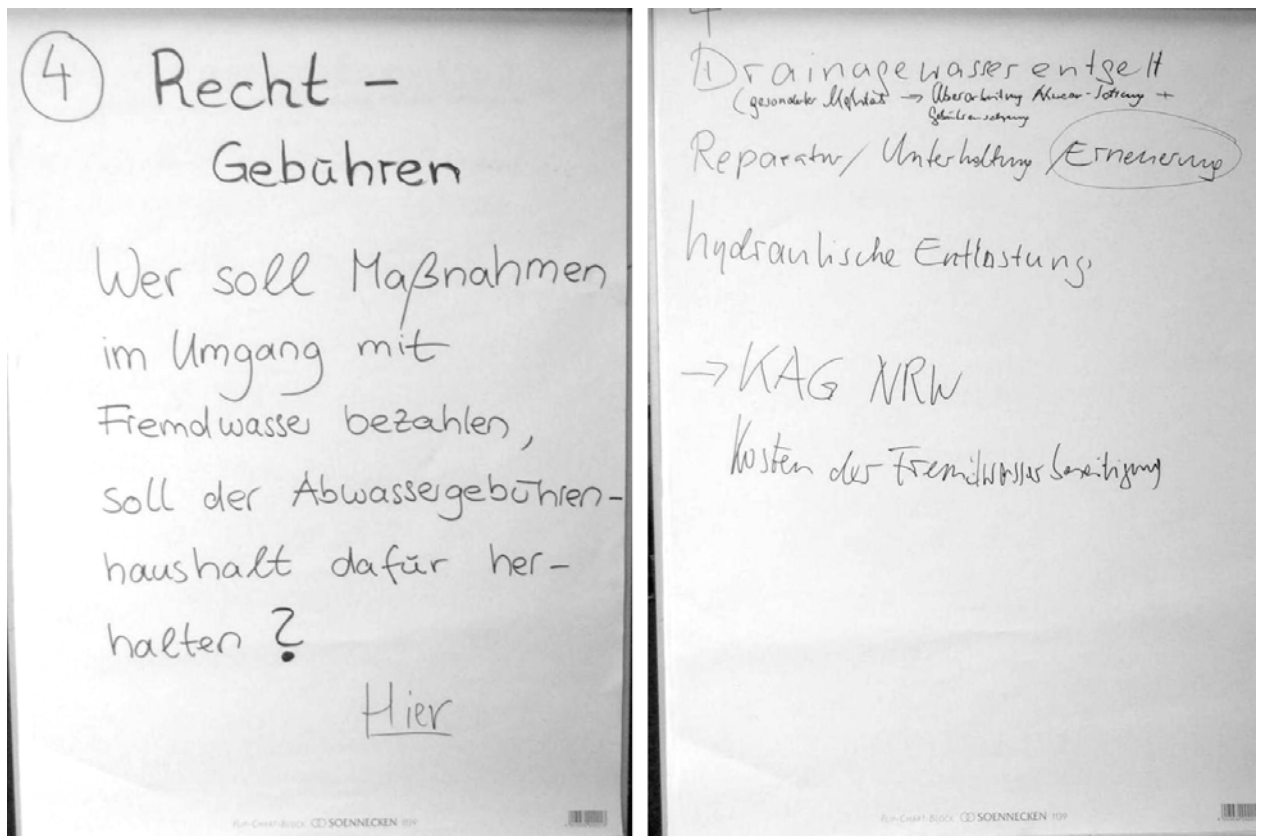 4
Recht -
Gebühren
Wer soll Maßnahmen
im Umgang mit
Fremdwasser bezahlen,
soll der Abwassergebühren-
haushalt dafür her-
halten ?
Hier
FLIP-CHART-BLOCK SOENNECKEN 1139
4
Drainagewasserentgelt
(gesonderter → Überarbeitung +
Reparatur / Unterhaltung / Erneuerung
hydraulische Entlastung
→ KAG NRW
Kosten der Fremdwasserbeseitigung
FLIP-CHART-BLOCK SOENNECKEN 1139